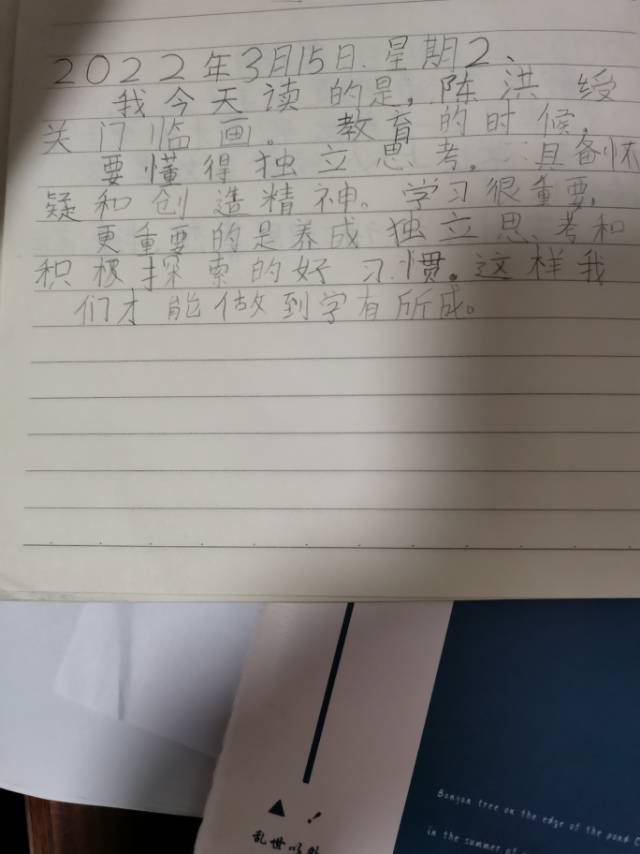 2022年3月15日.星期2、
我今天读的是，陈洪绶
关门临画。教育的时候，
要懂得独立思考，具备怀
疑和创造精神。学习很重要，
更重要的是养成独立思考和
积极探索的好习惯。这样我
们才能做到学有所成。
乱世
Banyan tree on the edge of the pond
in the summer of